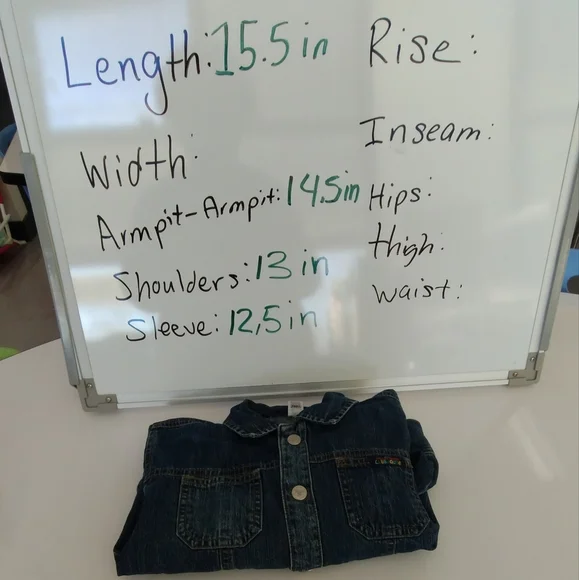 Length: 15.5 in
Width:
Armpit-Armpit: 14.5in
Shoulders: 13 in
Sleeve: 12,5 in
Rise:
Inseam:
Hips:
thigh:
waist: